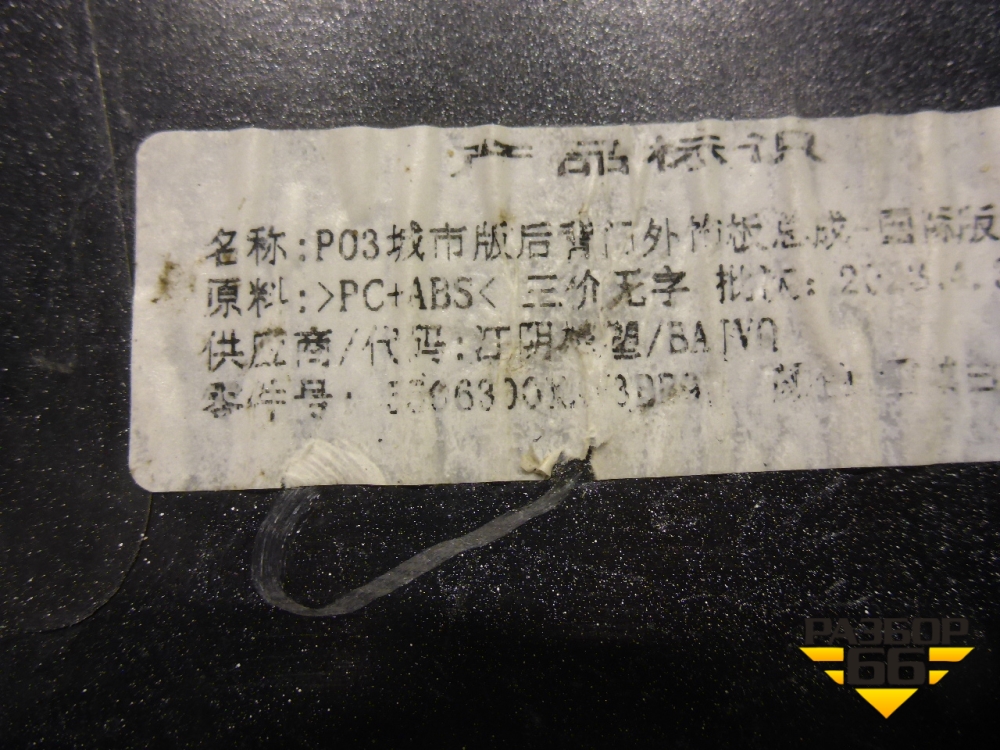 产品标识
名称:P03城市版后背门外饰板总成-国标版
原料:>PC+ABS< 三价无字 批次:
供应商/代码:江阴模塑/BAJVQ
零件号: 颜色:
РАЗБОР
66